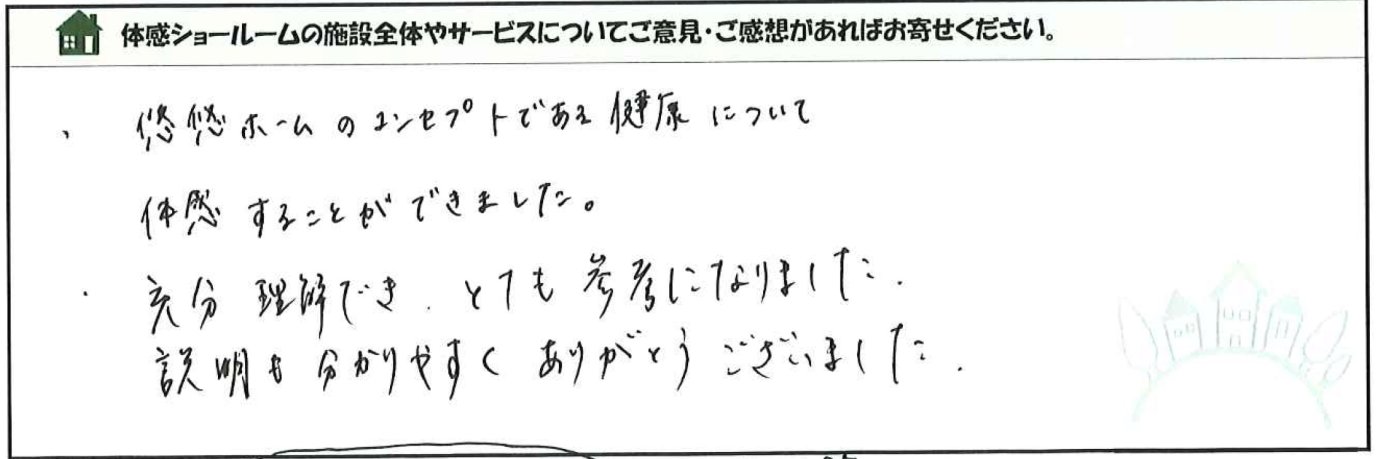 体感ショールームの施設全体やサービスについてご意見・ご感想があればお寄せください。
・ 悠悠ホームのコンセプトである健康について
体感することができました。
・ 充分理解でき、とても参考になりました。
説明も分かりやすくありがとうございました。